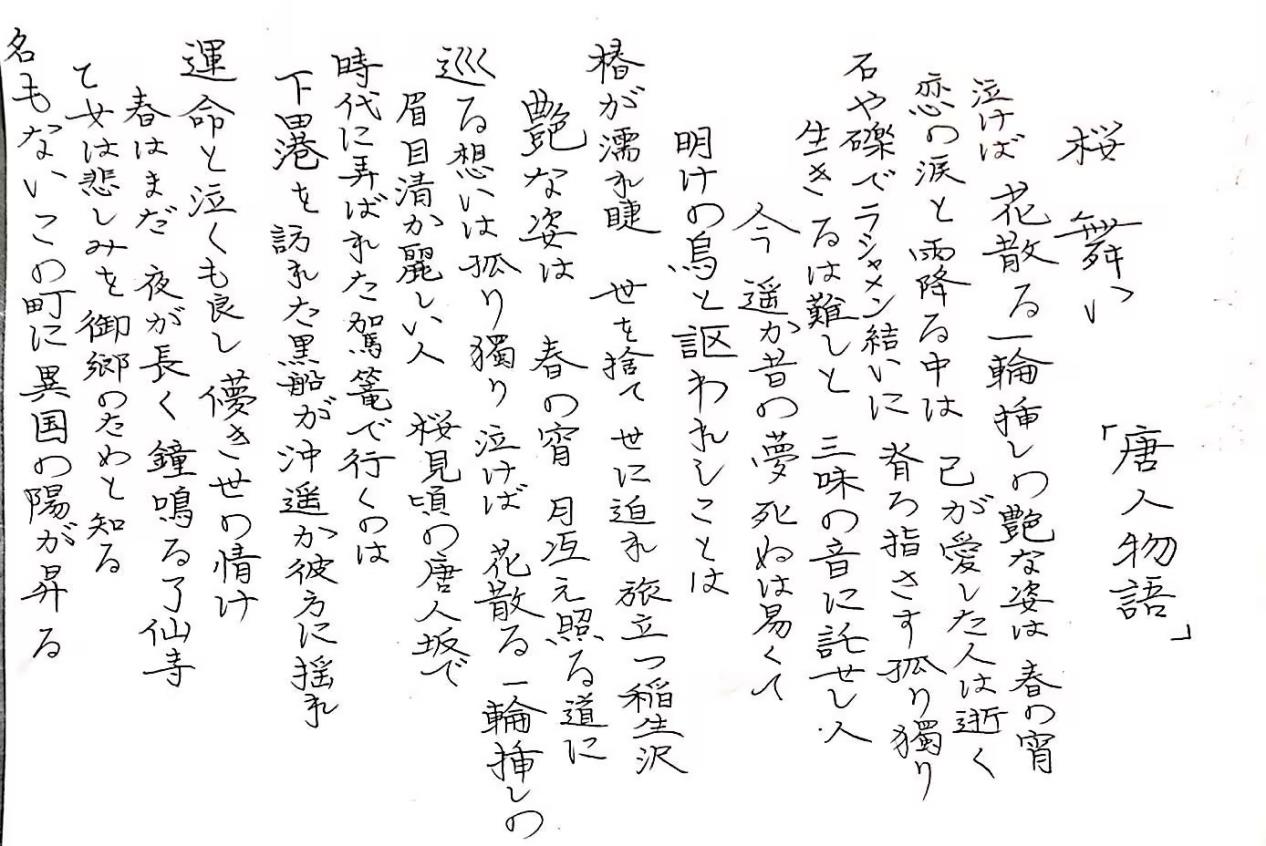 「唐人物語」
桜 舞い
泣けば 花散る 一輪挿しの艶な姿は 春の宵
恋の涙と雨降る中は 己が愛した人は逝く
石や礫でラシャメン結いに 脊ろ指さす孤り獨り
生きるは難しと 三味の音に託せし人
今 遥か昔の夢 死ぬは易くて
明けの鳥と謳われしことは
椿が濡れ睫 世を捨て 世に迫れ 旅立つ稲生沢
艶な姿は 春の宵 月冱え照る道に
巡る想いは孤り獨り 泣けば 花散る 一輪挿しの
眉目清か麗しい人 桜見頃の唐人坂で
時代に弄ばれた駕篭で行くのは
下田港を訪れた黒船が沖遥か彼方に揺れ
運命と泣くも良し 儚き世の情け
春はまだ 夜が長く 鐘鳴る了仙寺
て女は悲しみを御郷のためと知る
名もないこの町に異国の陽が昇る